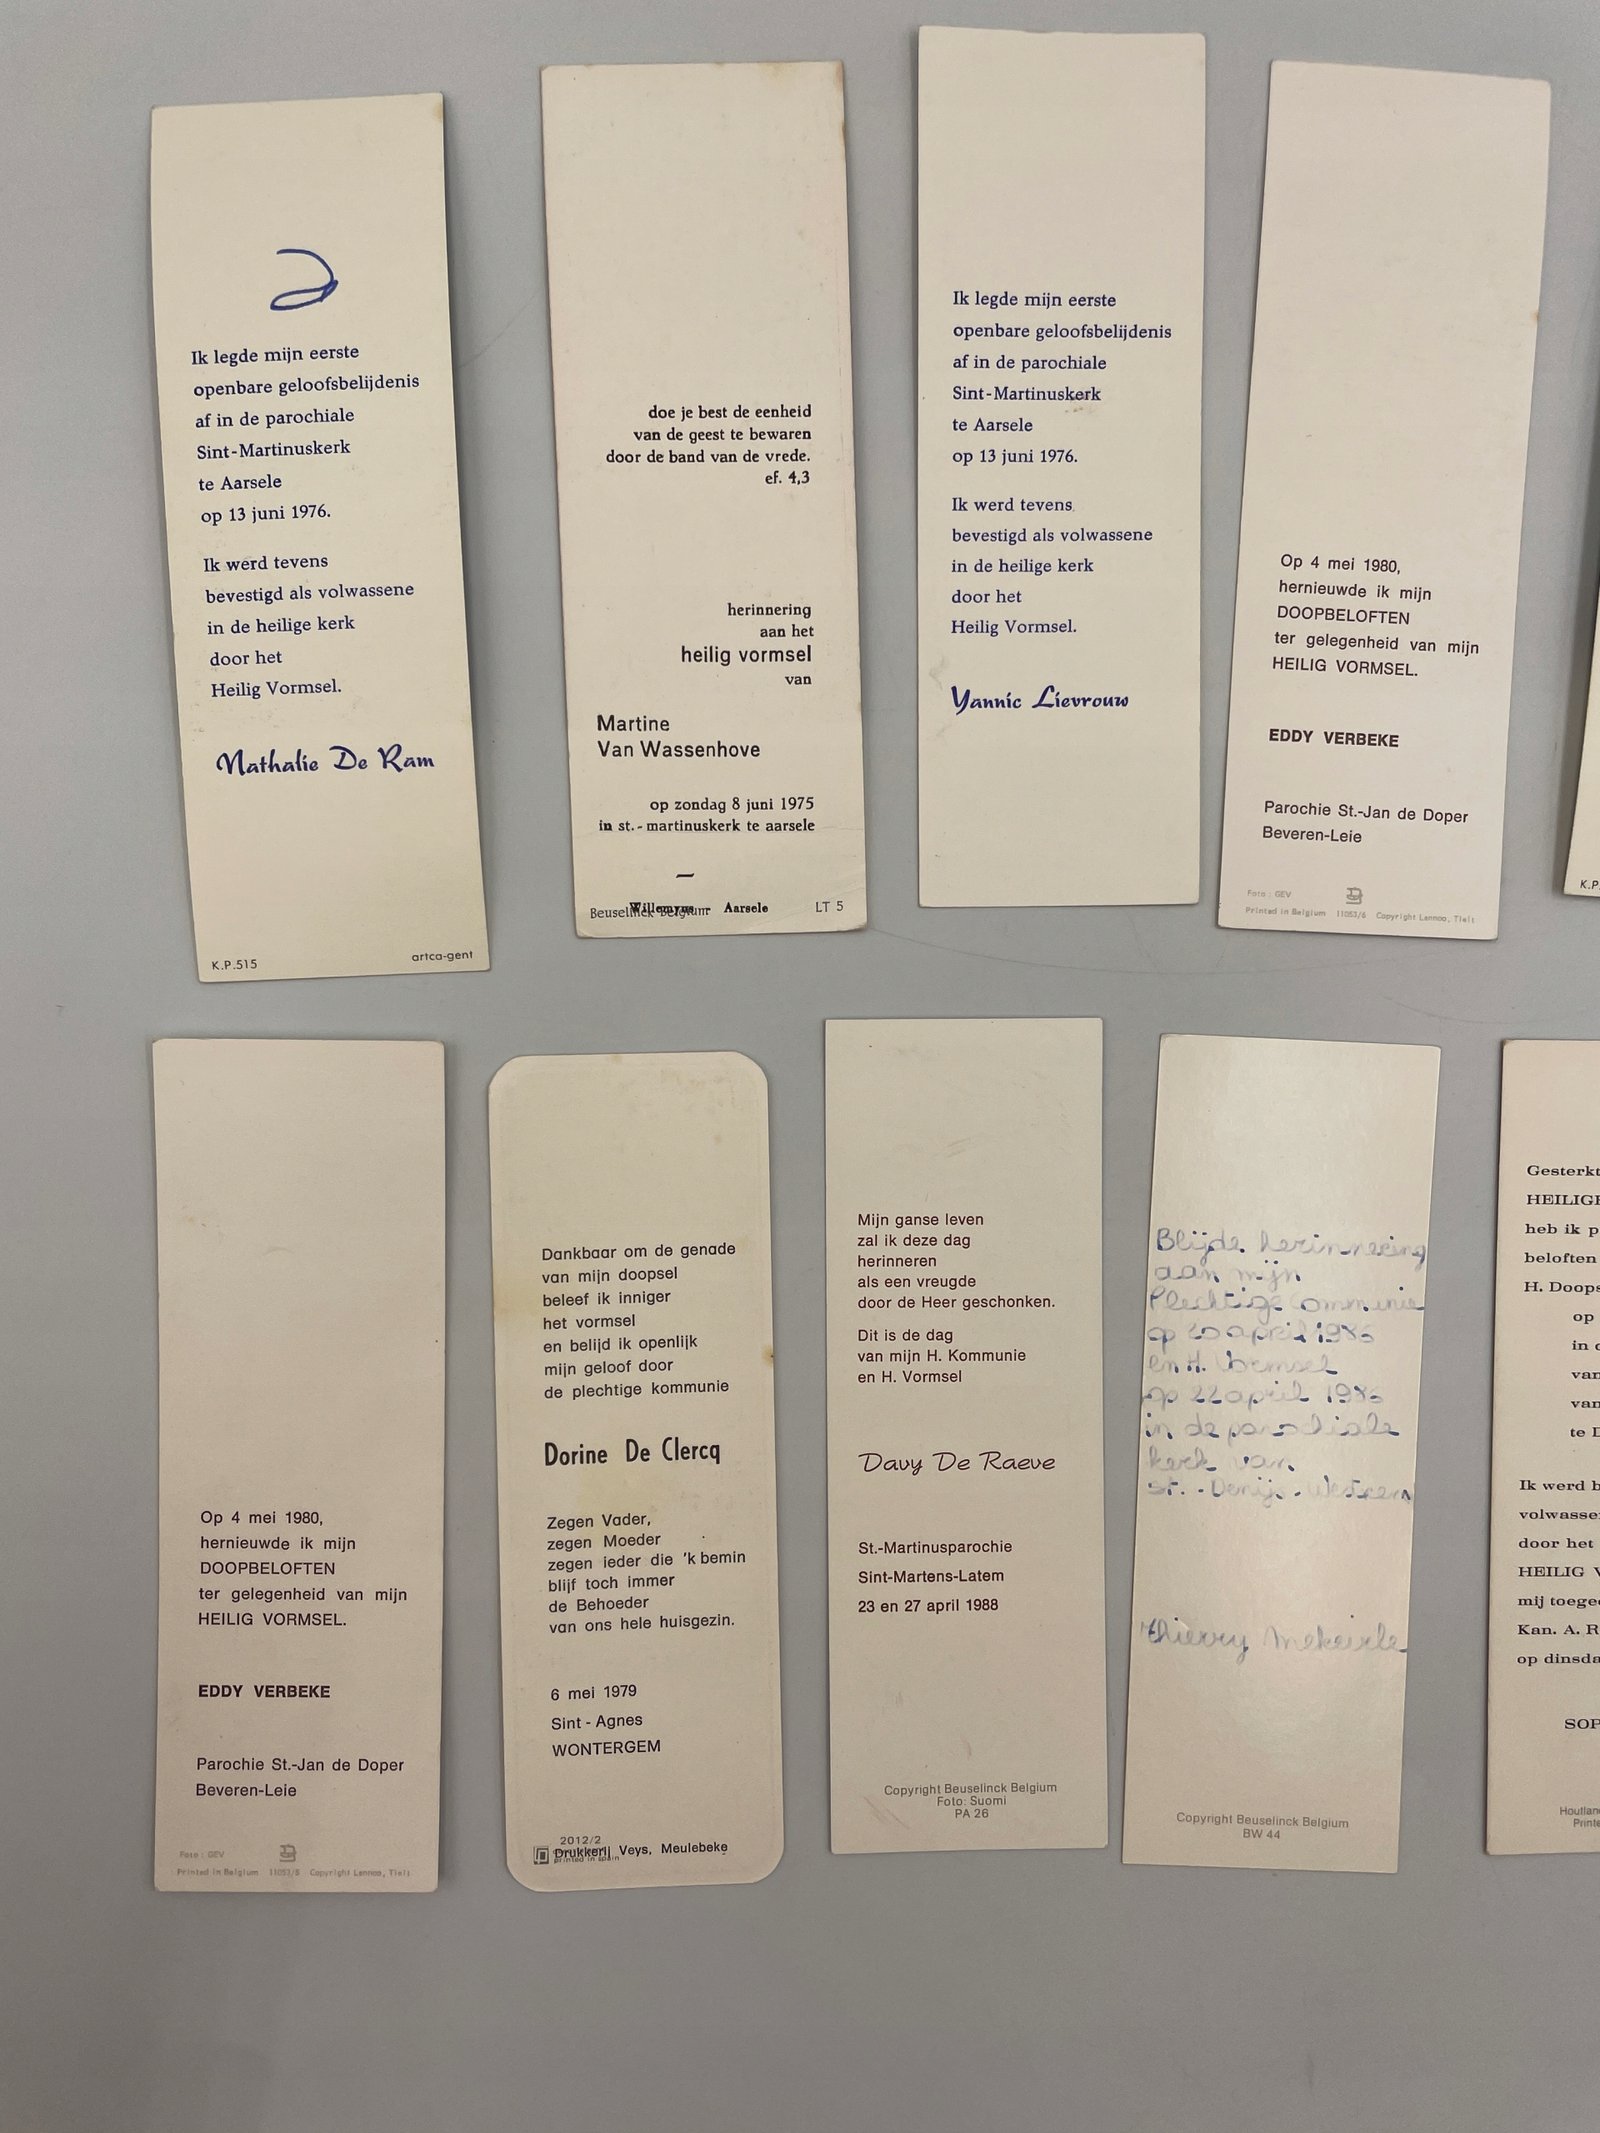 Ik legde mijn eerste
openbare geloofsbelijdenis
af in de parochiale
Sint-Martinuskerk
te Aarsele
op 13 juni 1976.
Ik werd tevens
bevestigd als volwassene
in de heilige kerk
door het
Heilig Vormsel.
Nathalie De Ram
K.P.515 artca-gent
doe je best de eenheid
van de geest te bewaren
door de band van de vrede.
ef. 4,3
herinnering
aan het
heilig vormsel
van
Martine
Van Wassenhove
op zondag 8 juni 1975
in st.-martinuskerk te aarsele
Willemyns - Aarsele
Beuselinck Belgium LT 5
Ik legde mijn eerste
openbare geloofsbelijdenis
af in de parochiale
Sint-Martinuskerk
te Aarsele
op 13 juni 1976.
Ik werd tevens
bevestigd als volwassene
in de heilige kerk
door het
Heilig Vormsel.
Yannic Lievrouw
Op 4 mei 1980,
hernieuwde ik mijn
DOOPBELOFTEN
ter gelegenheid van mijn
HEILIG VORMSEL.
EDDY VERBEKE
Parochie St.-Jan de Doper
Beveren-Leie
Foto: GEV
Printed in Belgium 11053/6 Copyright Lannoo, Tielt
K.P.
Op 4 mei 1980,
hernieuwde ik mijn
DOOPBELOFTEN
ter gelegenheid van mijn
HEILIG VORMSEL.
EDDY VERBEKE
Parochie St.-Jan de Doper
Beveren-Leie
Foto: GEV
Printed in Belgium 11053/5 Copyright Lannoo, Tielt
Dankbaar om de genade
van mijn doopsel
beleef ik inniger
het vormsel
en belijd ik openlijk
mijn geloof door
de plechtige kommunie
Dorine De Clercq
Zegen Vader,
zegen Moeder
zegen ieder die 'k bemin
blijf toch immer
de Behoeder
van ons hele huisgezin.
6 mei 1979
Sint - Agnes
WONTERGEM
2012/2
Drukkerij Veys, Meulebeke
printed in spain
Mijn ganse leven
zal ik deze dag
herinneren
als een vreugde
door de Heer geschonken.
Dit is de dag
van mijn H. Kommunie
en H. Vormsel
Davy De Raeve
St.-Martinusparochie
Sint-Martens-Latem
23 en 27 april 1988
Copyright Beuselinck Belgium
Foto: Suomi
PA 26
Blijde herinnering
aan mijn
Plechtige Communie
op 20 april 1986
en H. Vormsel
op 22 april 1986
in de parochiale
kerk van
St. - Denijs - Westrem
Thierry
Copyright Beuselinck Belgium
BW 44
Gesterkt
HEILIGE
heb ik p
beloften
H. Doops
op
in d
van
van
te D
Ik werd b
volwasse
door het
HEILIG V
mij toege
Kan. A. R
op dinsda
SOP
Houtlan
Printe